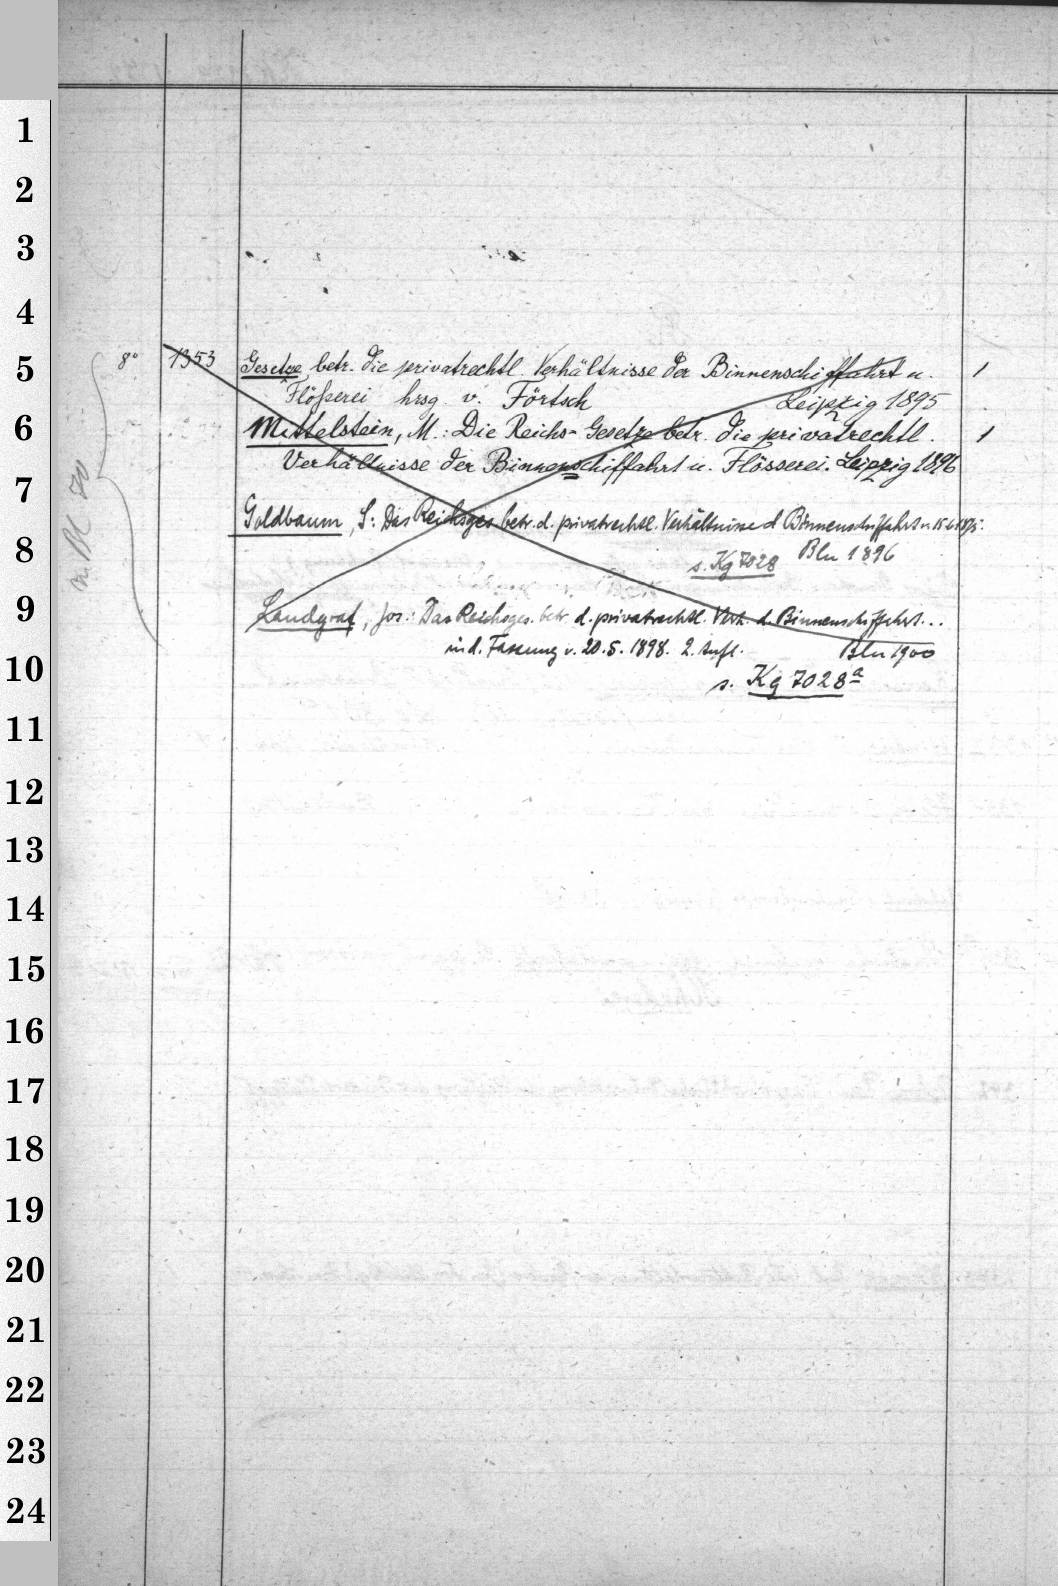 1
2
3
4
5
6
7
8
9
10
11
12
13
14
15
16
17
18
19
20
21
22
23
24
8° 1353 Gesetze betr. die privatrechtl. Verhältnisse der Binnenschiffahrt u. 1
Flößerei hrsg. v. Förtsch Leipzig 1895
Mittelstein, M.: Die Reichs-Gesetze betr. die privatrechtl. 1
Verhältnisse der Binnenschiffahrt u. Flösserei. Leipzig 1896
Goldbaum, S: Das Reichsges betr. d. privatrechtl. Verhältnisse d Binnenschiffahrt v. 15.6.1895.
s. Kg 7028 Bln 1896
Landgraf, Jos.: Das Reichsges. betr. d. privatrechtl. Verh. d. Binnenschiffahrt...
in d. Fassung v. 20.5.1898. 2. Aufl. Bln 1900
s. Kg 7028a